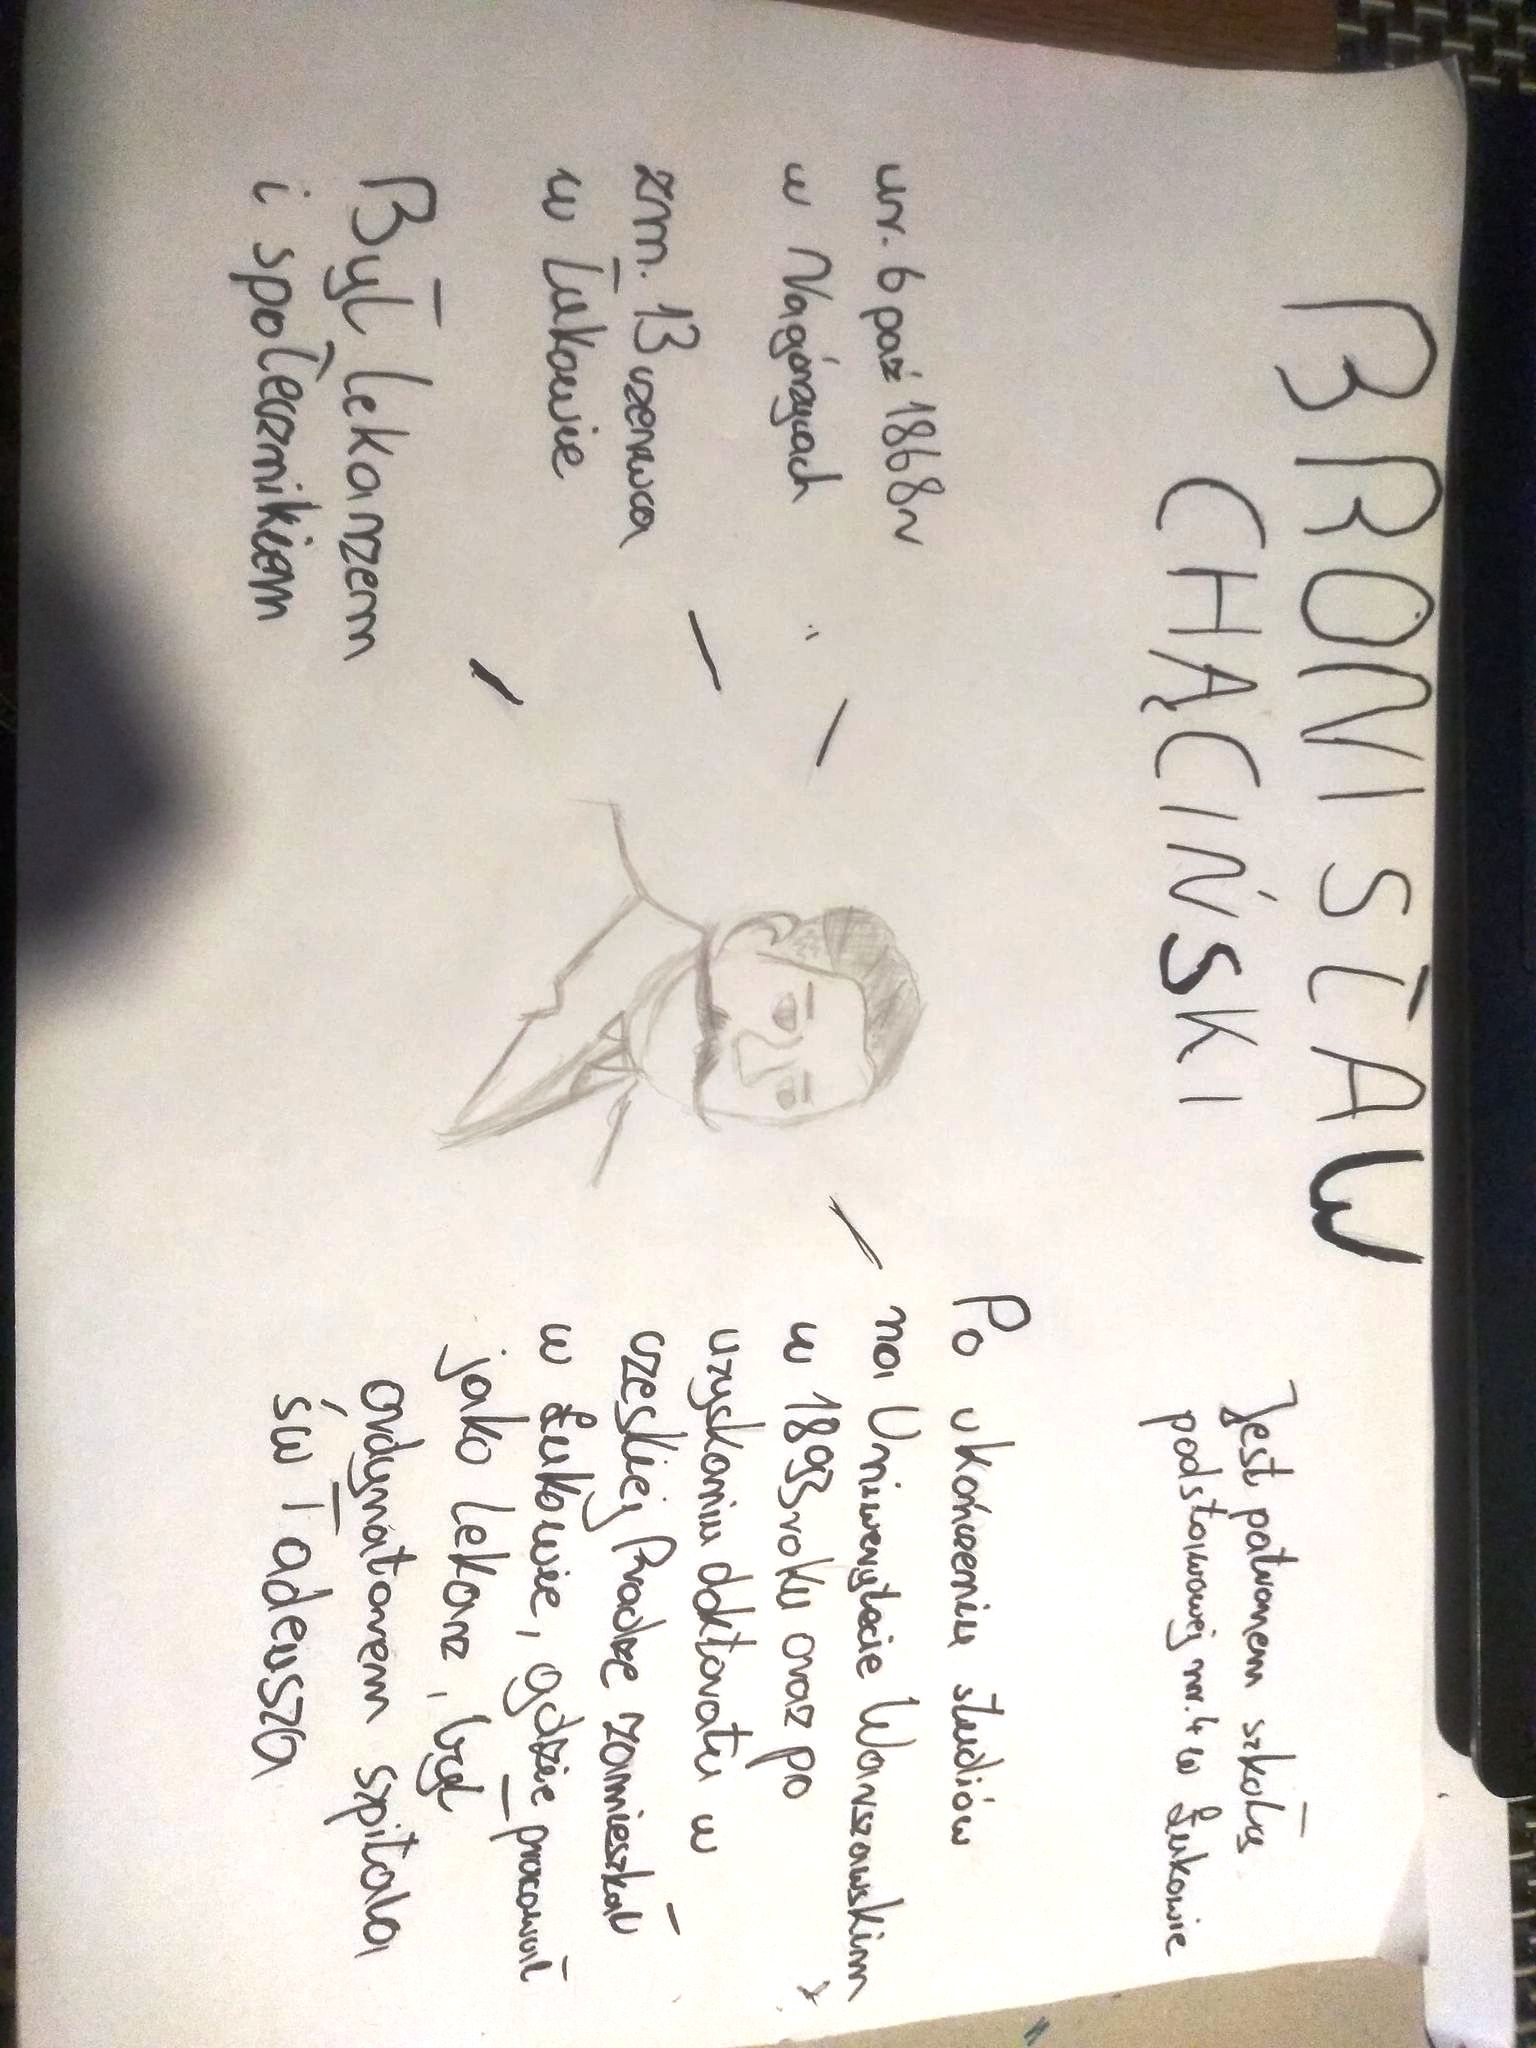 BRONISŁAW
CHĄCIŃSKI
Jest patronem szkoły
podstawowej nr. 4 w Łukowie
ur. 6 paź 1868r
w Nagórzycach
zm. 13 czerwca
w Łukowie
Był lekarzem
i społecznikiem
Po ukończeniu studiów
na Uniwersytecie Warszawskim
w 1893 roku oraz po
uzyskaniu doktoratu w
czeskiej Pradze zamieszkał
w Łukowie, gdzie pracował
jako lekarz, był
ordynatorem szpitala
św Tadeusza